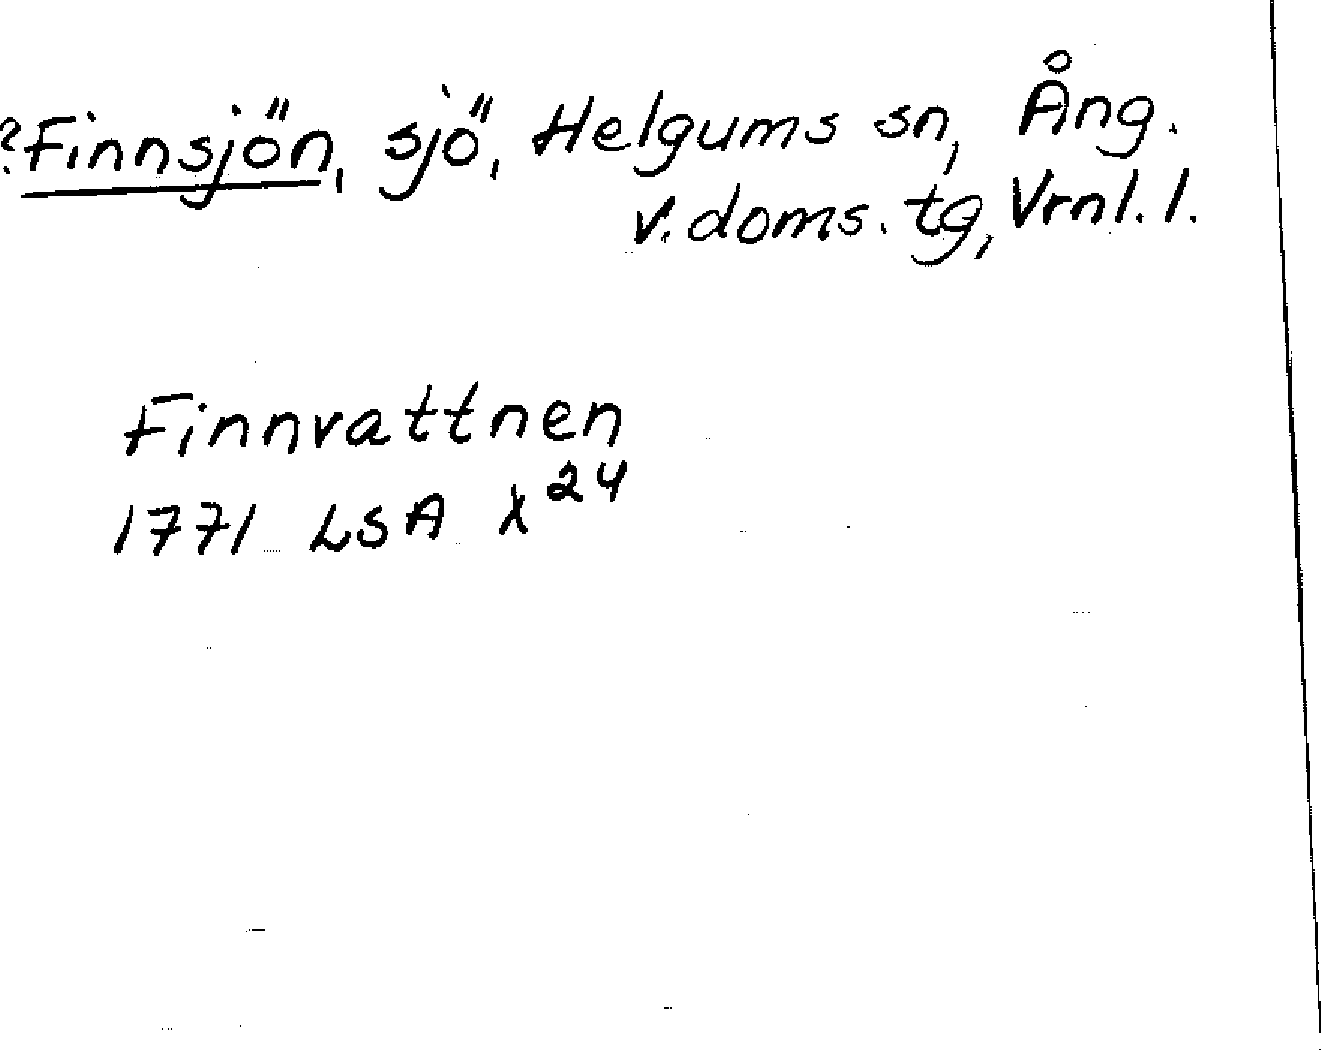 ?Finnsjön, sjö, Helgums sn, Ång.
V. doms. tg, Vrnl. l.
Finnvattnen
1771 LSA X 24